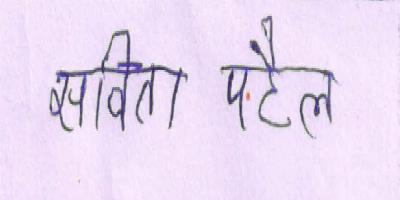 सविता पटैल